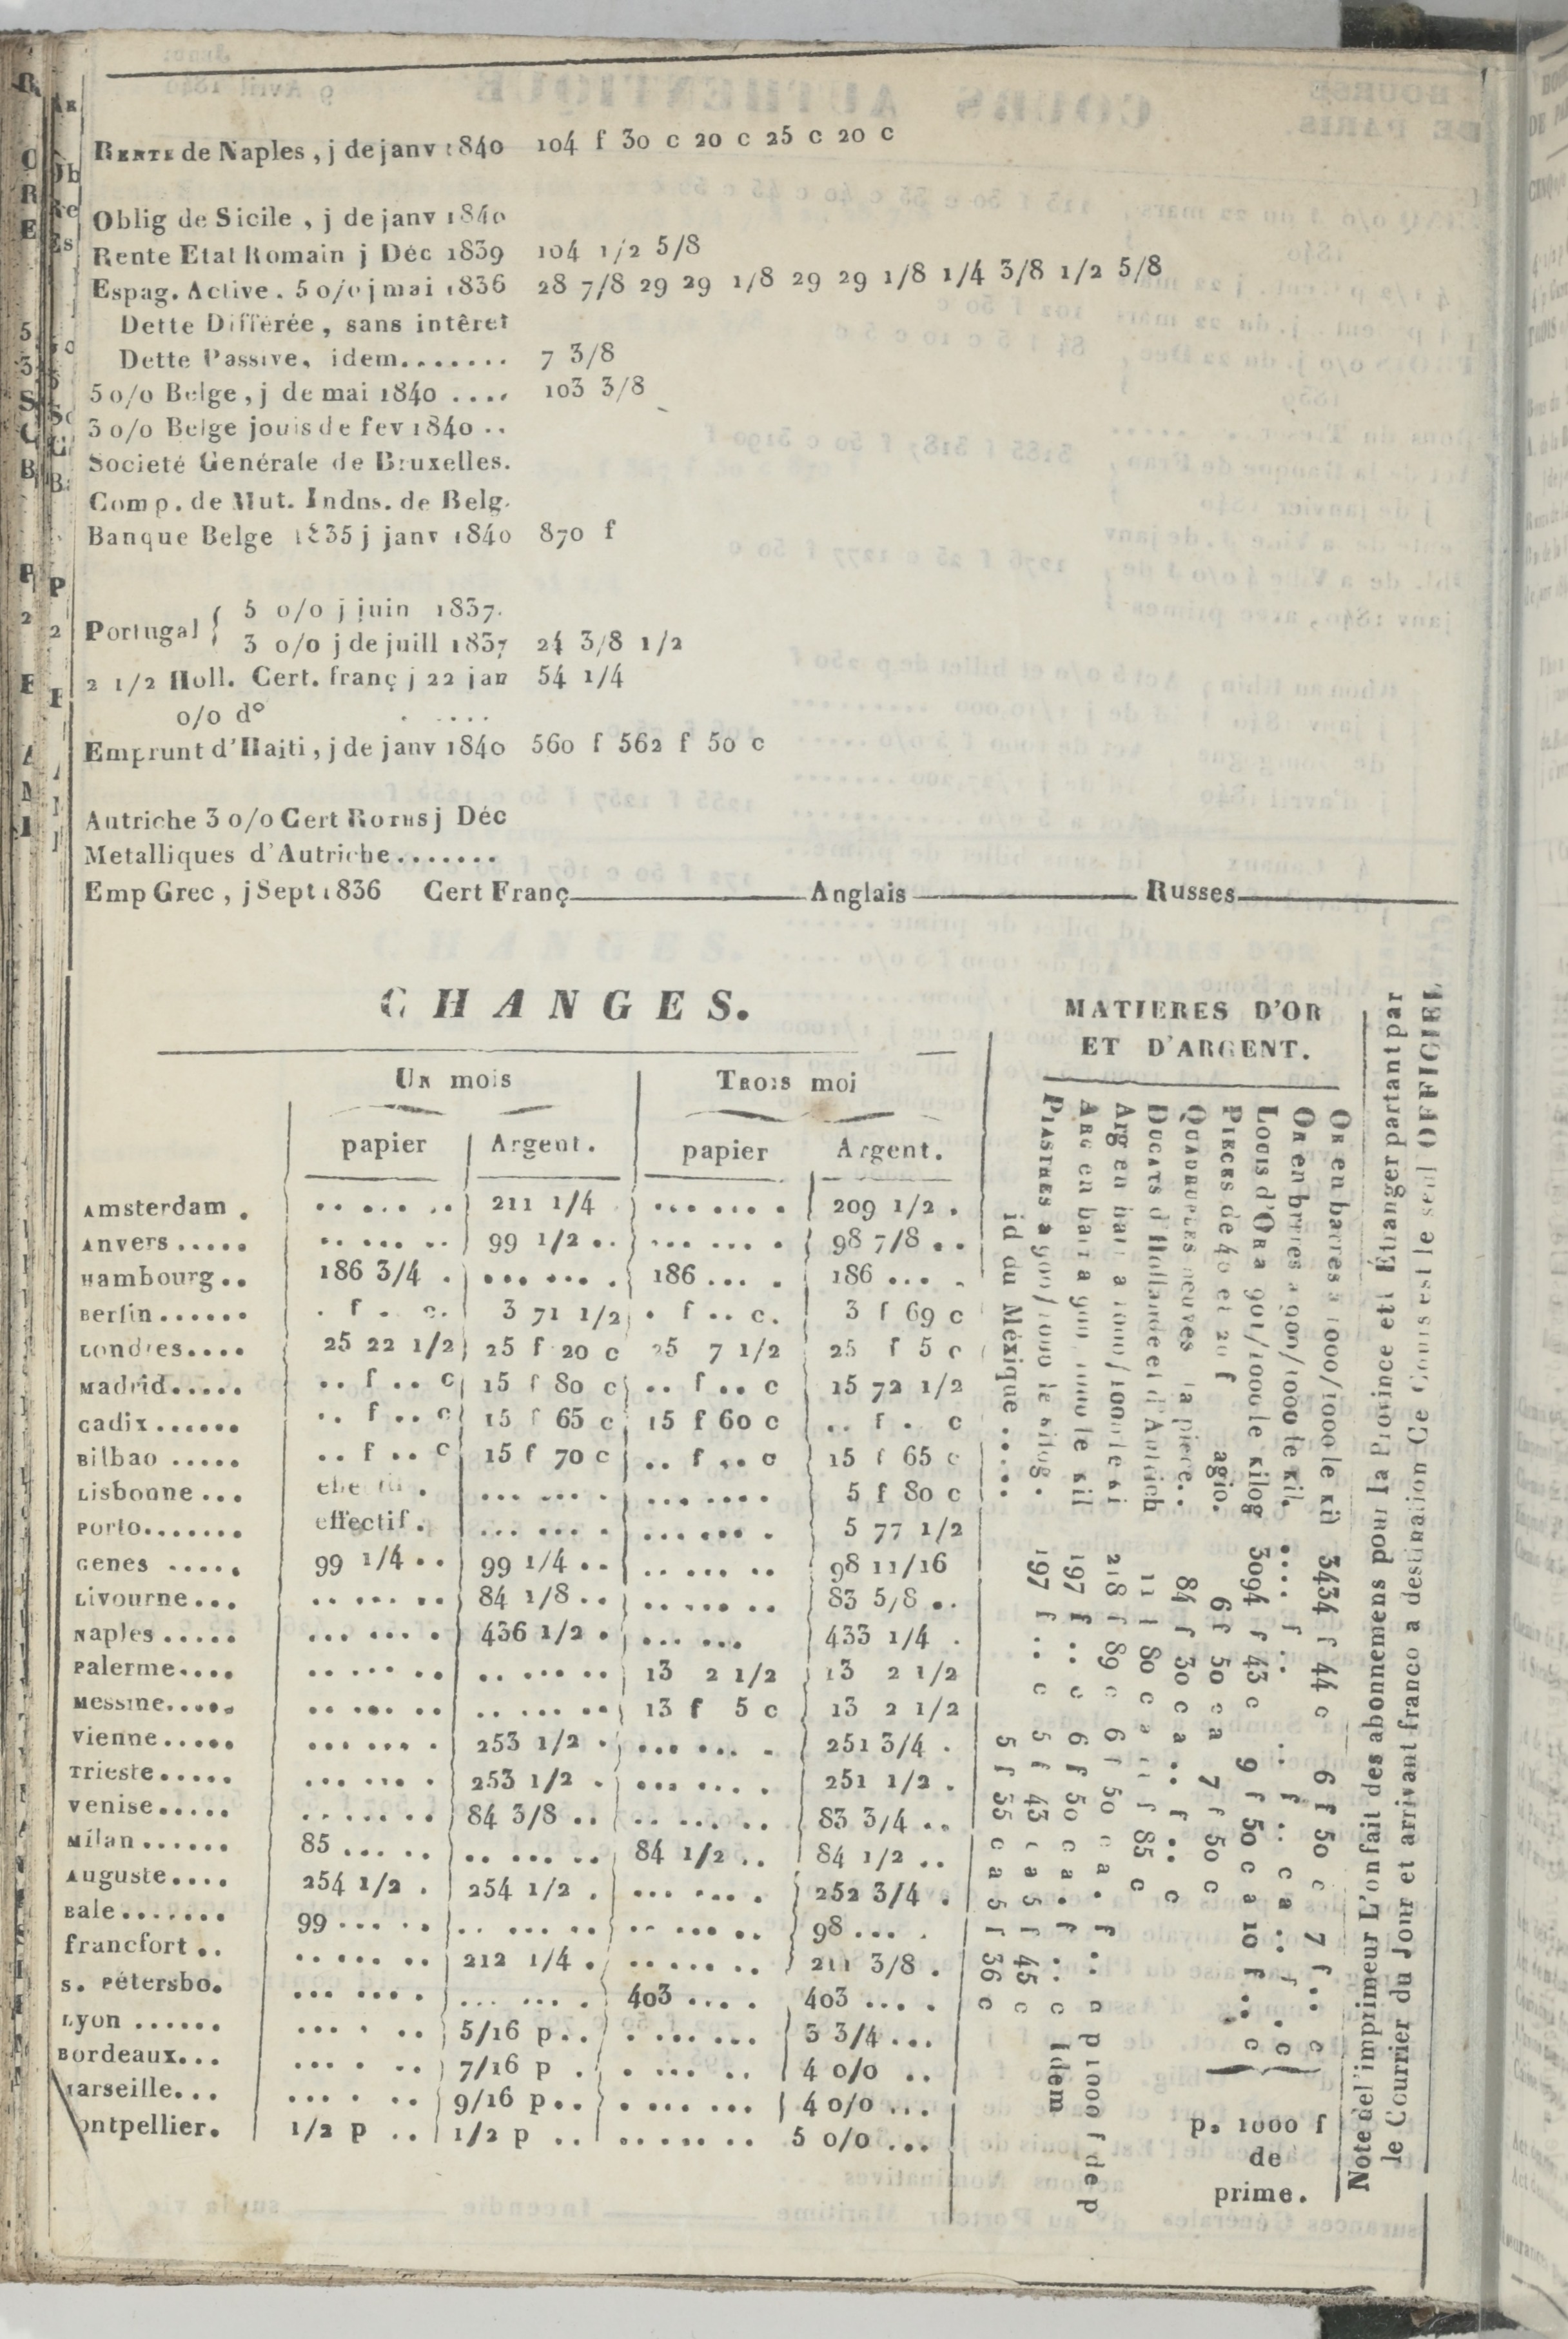 RENTE de Naples , j de janv 1840 104 f 30 c 20 c 25 c 20 c
Oblig de Sicile , j de janv 1840
Rente Etat Romain j Déc 1839 104 1/2 5/8
Espag. Active . 5 o/o j mai 1836 28 7/8 29 29 1/8 29 29 1/8 1/4 3/8 1/2 5/8
Dette Différée , sans intêret
Dette Passive, idem....... 7 3/8
5 o/o Belge , j de mai 1840 .... 103 3/8
3 o/o Belge jouis de fev 1840 ..
Societé Genérale de Bruxelles.
Comp. de Mut. Indns. de Belg.
Banque Belge 1835 j janv 1840 870 f
Portugal { 5 o/o j juin 1837.
3 o/o j de juill 1837 24 3/8 1/2
2 1/2 Holl. Cert. franç j 22 jan 54 1/4
o/o d° . ....
Emprunt d'Haiti, j de janv 1840 560 f 562 f 50 c
Autriche 3 o/o Cert Roths j Déc
Metalliques d'Autriche.......
Emp Grec , j Sept 1836 Cert Franç Anglais Russes
CHANGES.
UN mois TROIS moi
papier Argent. papier Argent.
Amsterdam . .. ... .. 211 1/4 ... ... . 209 1/2 .
Anvers ..... .. ... .. 99 1/2 .. ... ... . 98 7/8 ..
Hambourg .. 186 3/4 . ... ... . 186 ... . 186 ... .
Berlin ...... . f . c. 3 71 1/2 . f .. c. 3 f 69 c
Londres.... 25 22 1/2 25 f 20 c 25 7 1/2 25 f 5 c
Madrid..... .. f .. c 15 f 80 c .. f .. c 15 72 1/2
Cadix ...... .. f .. c 15 f 65 c 15 f 60 c .. f . c
Bilbao ..... .. f .. c 15 f 70 c .. f .. c 15 f 65 c
Lisbonne ... ... ... . ... .... 5 f 80 c
Porto....... effectif. ... ... . ... ... . 5 77 1/2
Genes ..... 99 1/4 .. 99 1/4 .. .. ... .. 98 11/16
Livourne ... .. ... .. 84 1/8 .. .. ... .. 83 5/8 ..
Naples ..... ... ... . 436 1/2 . ... ... 433 1/4 .
Palerme.... .. ... .. .. ... .. 13 2 1/2 13 2 1/2
Messine..... .. ... .. .. ... .. 13 f 5 c 13 2 1/2
Vienne ..... ... ... . 253 1/2 . ... ... . 251 3/4 .
Trieste..... ... ... . 253 1/2 . ... ... . 251 1/2 .
Venise..... . ... ... 84 3/8 .. .. ... .. 83 3/4 ..
Milan ...... 85 ... .. .. ... .. 84 1/2 .. 84 1/2 ..
Auguste.... 254 1/2 . 254 1/2 . ... ... . 252 3/4 .
Bale....... 99 ... .. .. ... .. .. ... .. 98 ... .
francfort .. .. ... .. 212 1/4 . .. ... .. 211 3/8 .
S. Pétersbo. ... ... . ... ... . 403 .... 403 ....
Lyon ...... ... . .. 5/16 p .. . ... ... 3 3/4 ...
Bordeaux... ... . .. 7/16 p . . ... .. 4 o/o ..
arseille... ... . .. 9/16 p .. . ... ... 4 o/o ...
ontpellier. 1/2 p .. 1/2 p .. .. ... .. 5 o/o ...
MATIERES D'OR
ET D'ARGENT.
OR en barres a 1000/1000 le Kil 3434 f 44 c 6 f 50 c 7 f .. c
OR en barres a 900/1000 le Kil. .... f .. .. f .. c a .. f .. c
LOUIS d'OR a 901/1000 le Kilog 3094 f 43 c 9 f 50 c a 10 f .. c
PIECES de 40 et 20 f agio. 6 f 50 c a 7 f 50 c
QUADRUPLES neuves la piece.. 84 f 30 c a .. f .. c
DUCATS d'Hollande et d'Autrich 11 f 80 c a 11 f 85 c
Arg en barr a 1000/1000 le Ki 218 f 89 c 6 f 50 c a . f .. a p 1000 f de p
ARG en barr a 900 1000 le Kil 197 f .. c 6 f 50 c a . f .. c idem
PIASTRES a 900/1000 le Kilog . 197 f .. c 5 f 43 c a 5 f 45 c
id du Méxique ..... 5 f 35 c a 5 f 36 c
p. 1000 f
de
prime.
Note del'imprimeur L'on fait des abonnemens pour la Province et l Étranger partant par
le Courrier du Jour et arrivant franco a destination Ce Cours est le seul OFFICIEL